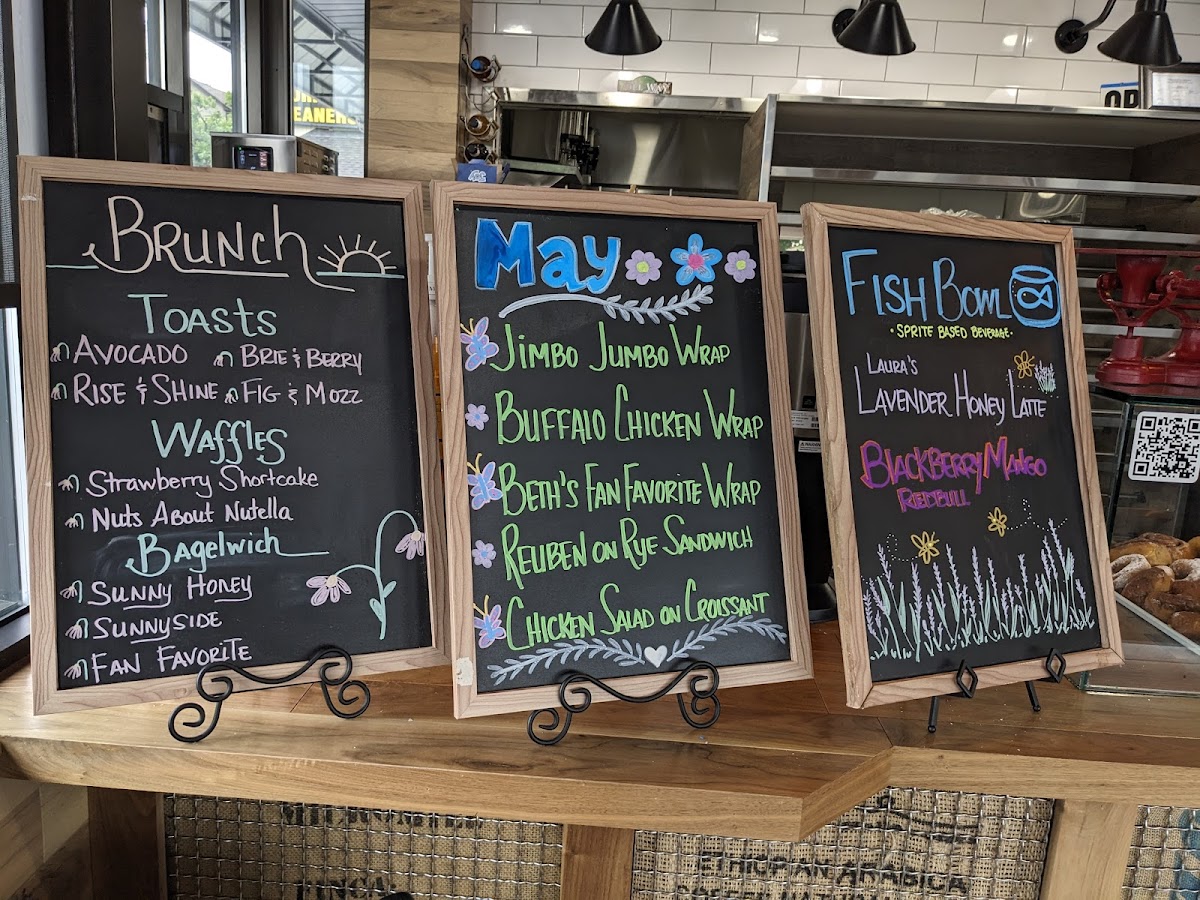 BRUNCH
TOASTS
AVOCADO BRIE & BERRY
RISE & SHINE FIG & MOZZ
WAFFLES
STRAWBERRY SHORTCAKE
NUTS ABOUT NUTELLA
BAGELWICH
SUNNY HONEY
SUNNYSIDE
FAN FAVORITE
MAY
JIMBO JUMBO WRAP
BUFFALO CHICKEN WRAP
BETH'S FAN FAVORITE WRAP
REUBEN ON RYE SANDWICH
CHICKEN SALAD ON CROISSANT
FISH BOWL
• SPRITE BASED BEVERAGE •
LAURA'S
LAVENDER HONEY LATTE
BLACKBERRY MANGO
REDBULL
ETHIOPIAN ARABICA